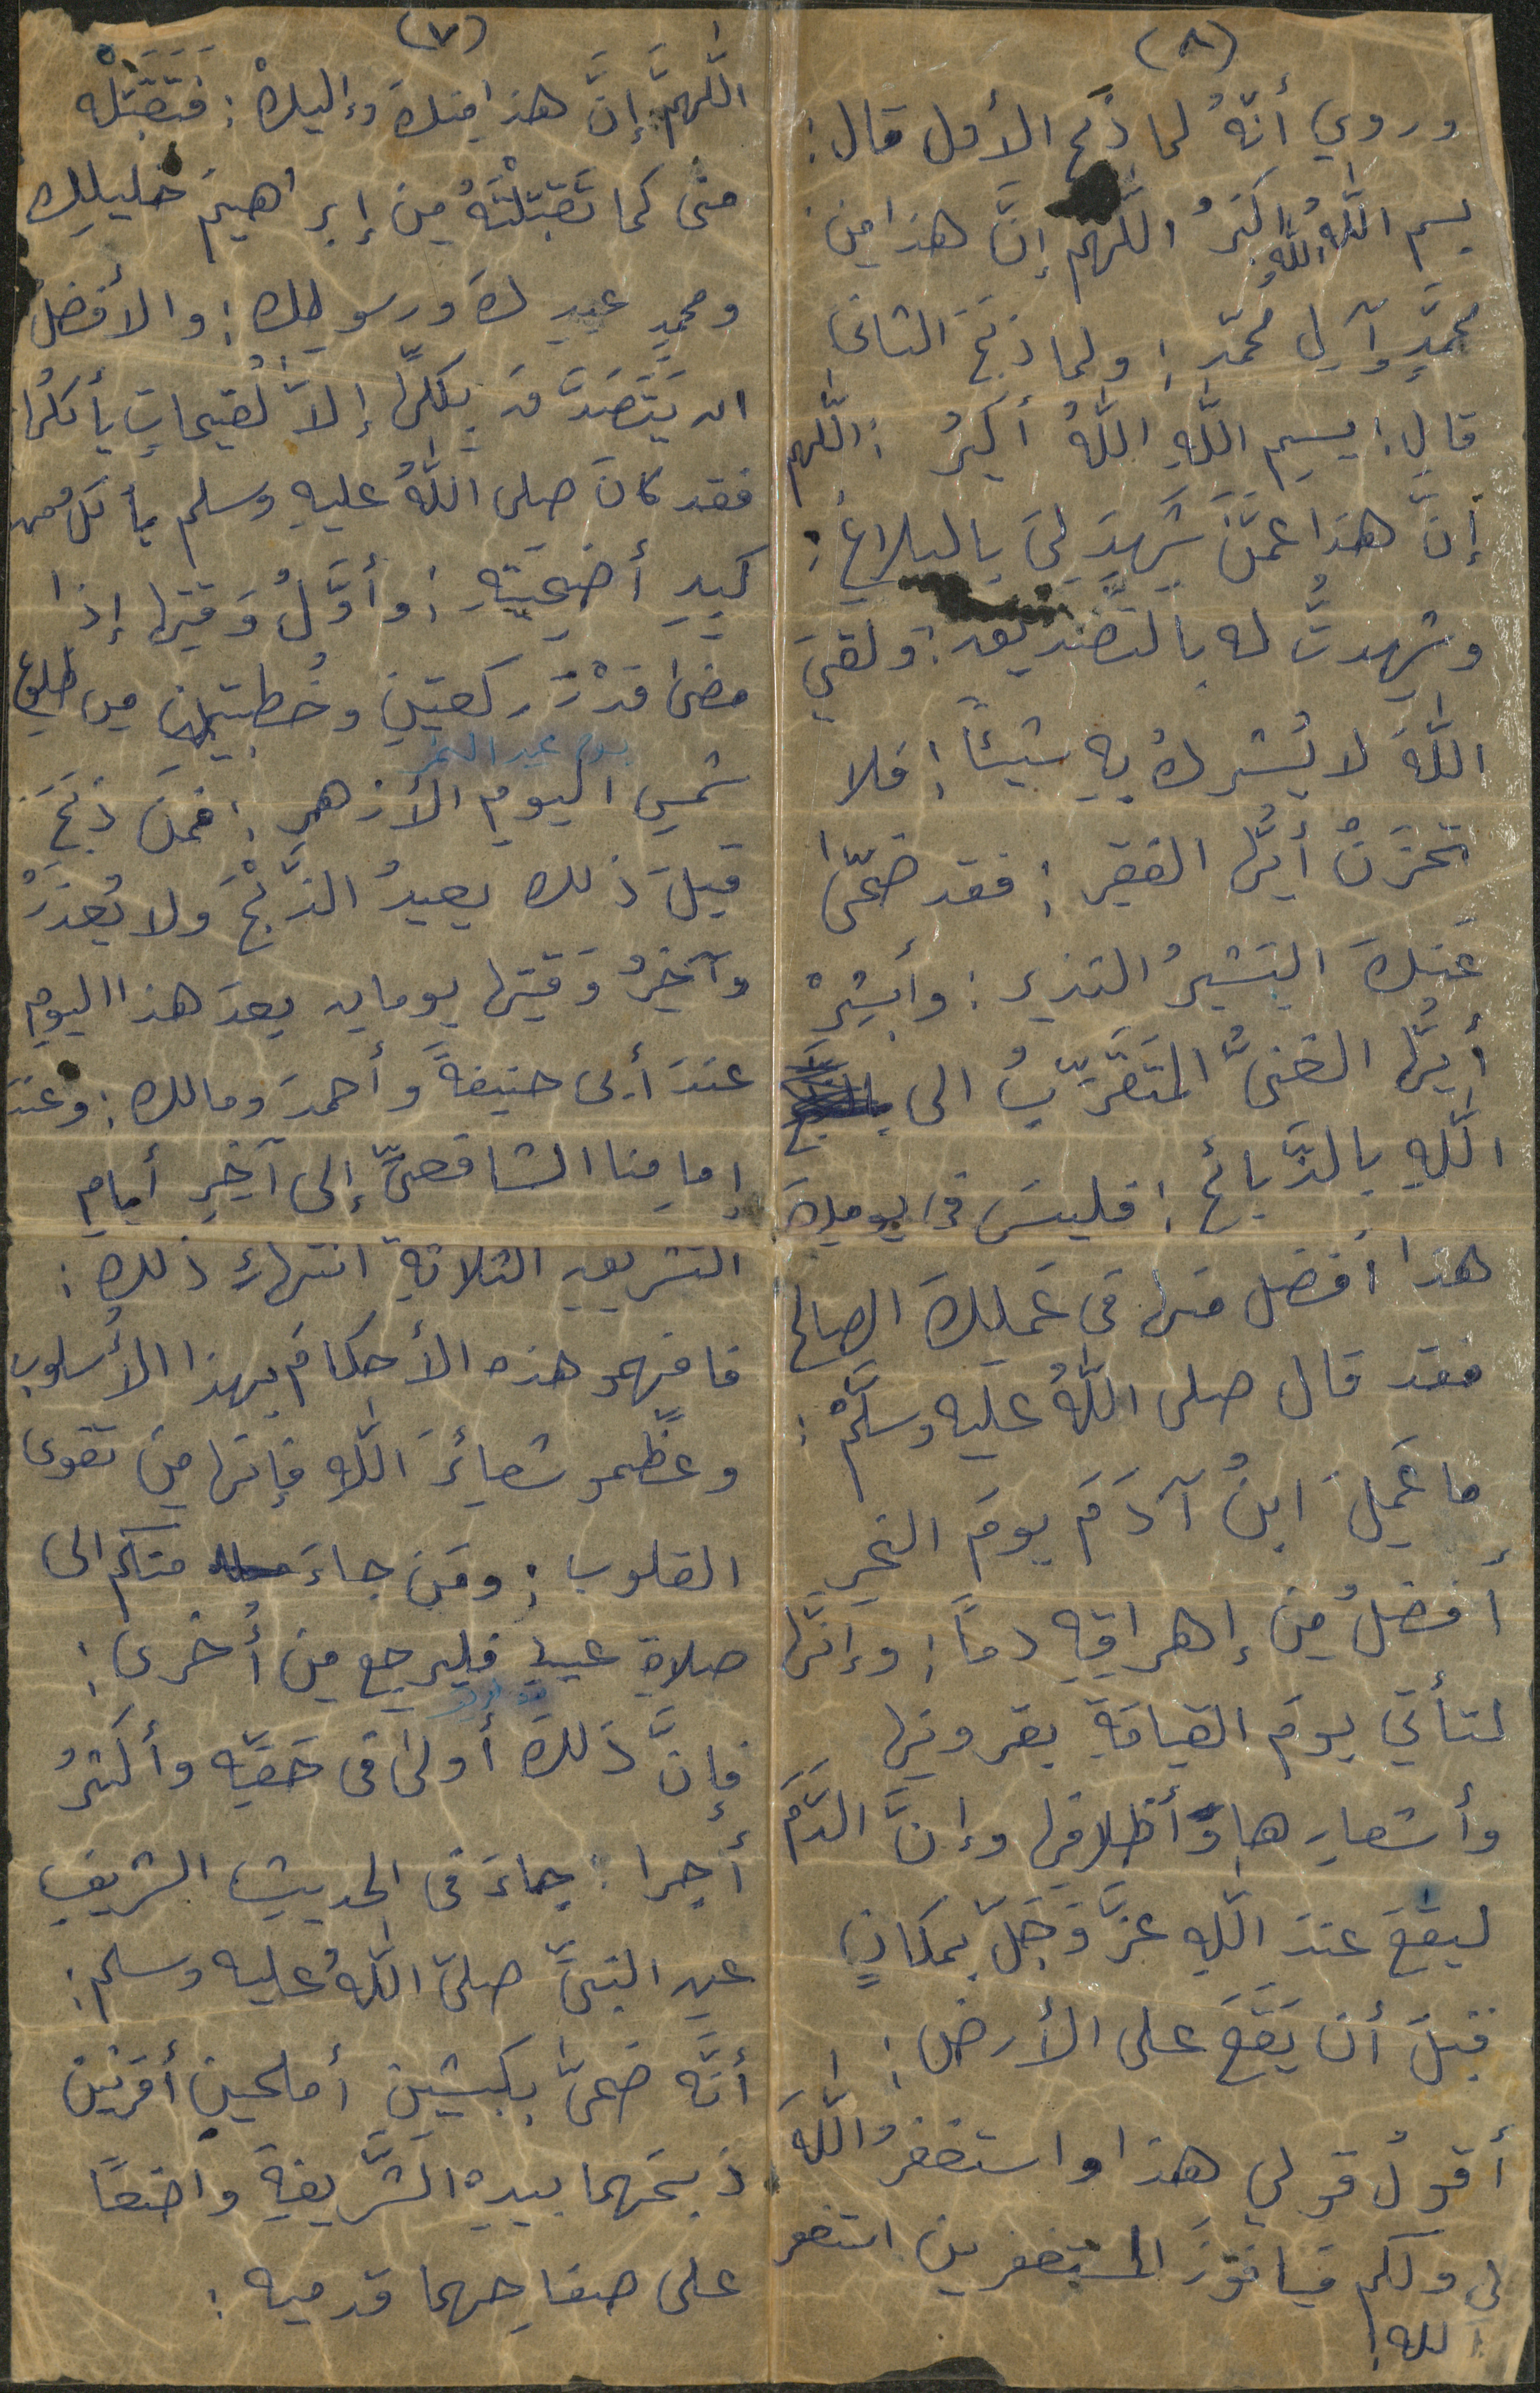 (٧)
اللَّهمَّ إنَّ هذا منكَ وإليكْ: فَتَقَبَّلْه
منى كما تَقَبَّلْتَهُ مِن إبراهيمَ خليلِك
ومحمدٍ عبدِكَ ورسولِك: والأفضلُ
ان يَتَصَدَّقَ بكلِّها إلاَّ لُقيماتٍ يأكلُها
فقد كانَ صلى اللَّهُ عليهِ وسلم يأكل من
كبِدِ أضحيَتِهِ: وأوَّلُ وَقتِها إذا
مضى قَدْرَ ركعتينِ وخُطبتينِ من طلوعِ
يوم عيد النحر
شمسِ اليومِ الأزهرِ: فمَن ذبَحَ
قبلَ ذلك يعيدُ الذَّبْحَ ولا يُعذَرْ
وآخِرُ وَقتِها يومان بعدَ هذا اليومِ
عندَ أبى حنيفةَ وأحمدَ ومالك: وعندَ
إمامِنا الشافعىِّ إلى آخِرِ أيامِ
التشريق الثلاثةِ انتهاءِ ذلك:
فافهمو هذه الأحكامَ بهذا الأُسلوب
وعظِّمو شعائرَ اللَّه فإنها مِن تقوى
القلوب: ومَن جاءَ منكم الى
صلاةِ عيدٍ فليرجع من أُخرى:
فإنَّ ذلكَ أولى فى حَقِّه وأكثرُ
أجرا: جاءَ فى الحديث الشريفِ
عن النبىِّ صلىّ اللَّهُ عليه وسلم:
أنَّه ضحىّ بكبشينِ أملحينِ أقرنَيْن
ذبَحَهما بيدِه الشَّريفةِ واضعًا
على صفاحِهما قدميه:
(٨)
وروي أنَّهُ لما ذبَح الأول قال:
بسم اللَّهِ اللَّهُ اكبَرُ اللَّهم إنَّ هذا مِن
محمَّدٍ وآلِ محمَّد: ولما ذبَحَ الثانى
قال: بسمِ اللَّهِ اللَّهُ أكبرُ: اللَّهم
إنَّ هذا عمَّن شَهِدَ لىَ بالبلاغ:
وشهدتُّ له بالتَّصديق: ولقىَ
اللَّهَ لا يُشركُ بِه شيئاً: فلا
تحزَنْ أيُّها الفقير: فقد ضحَّى
عَنكَ البَشيرُ النذير: وأَبشِرْ
أيُّها الغنىُّ المتَقَرِّبُ الى
اللَّهِ بالذَّبائح: فليسَ فى يومِكَ
هذا أفضل منها فى عَمَلِكَ الصالح
فقد قال صلى اللَّهُ عليه وسلَّمْ:
ما عَمِلَ ابنُ آدَمَ يومَ النحرِ
أفضلُ مِن إهراقِهِ دماً: وإنَّها
لتأتي يومَ القيامَةِ بقرونِها
وأشعارِها وأظلافِها وإنَّ الدَّمَ
ليقعَ عندَ اللَّهِ عزَّ وَجَلّ بمكانٍ
قبلَ أن يَقَعَ على الأرض:
أقولُ قولي هذا واستغفرُ اللَّهَ
لى ولكم فيا فوزَ المستغفرين استغفر
الله: